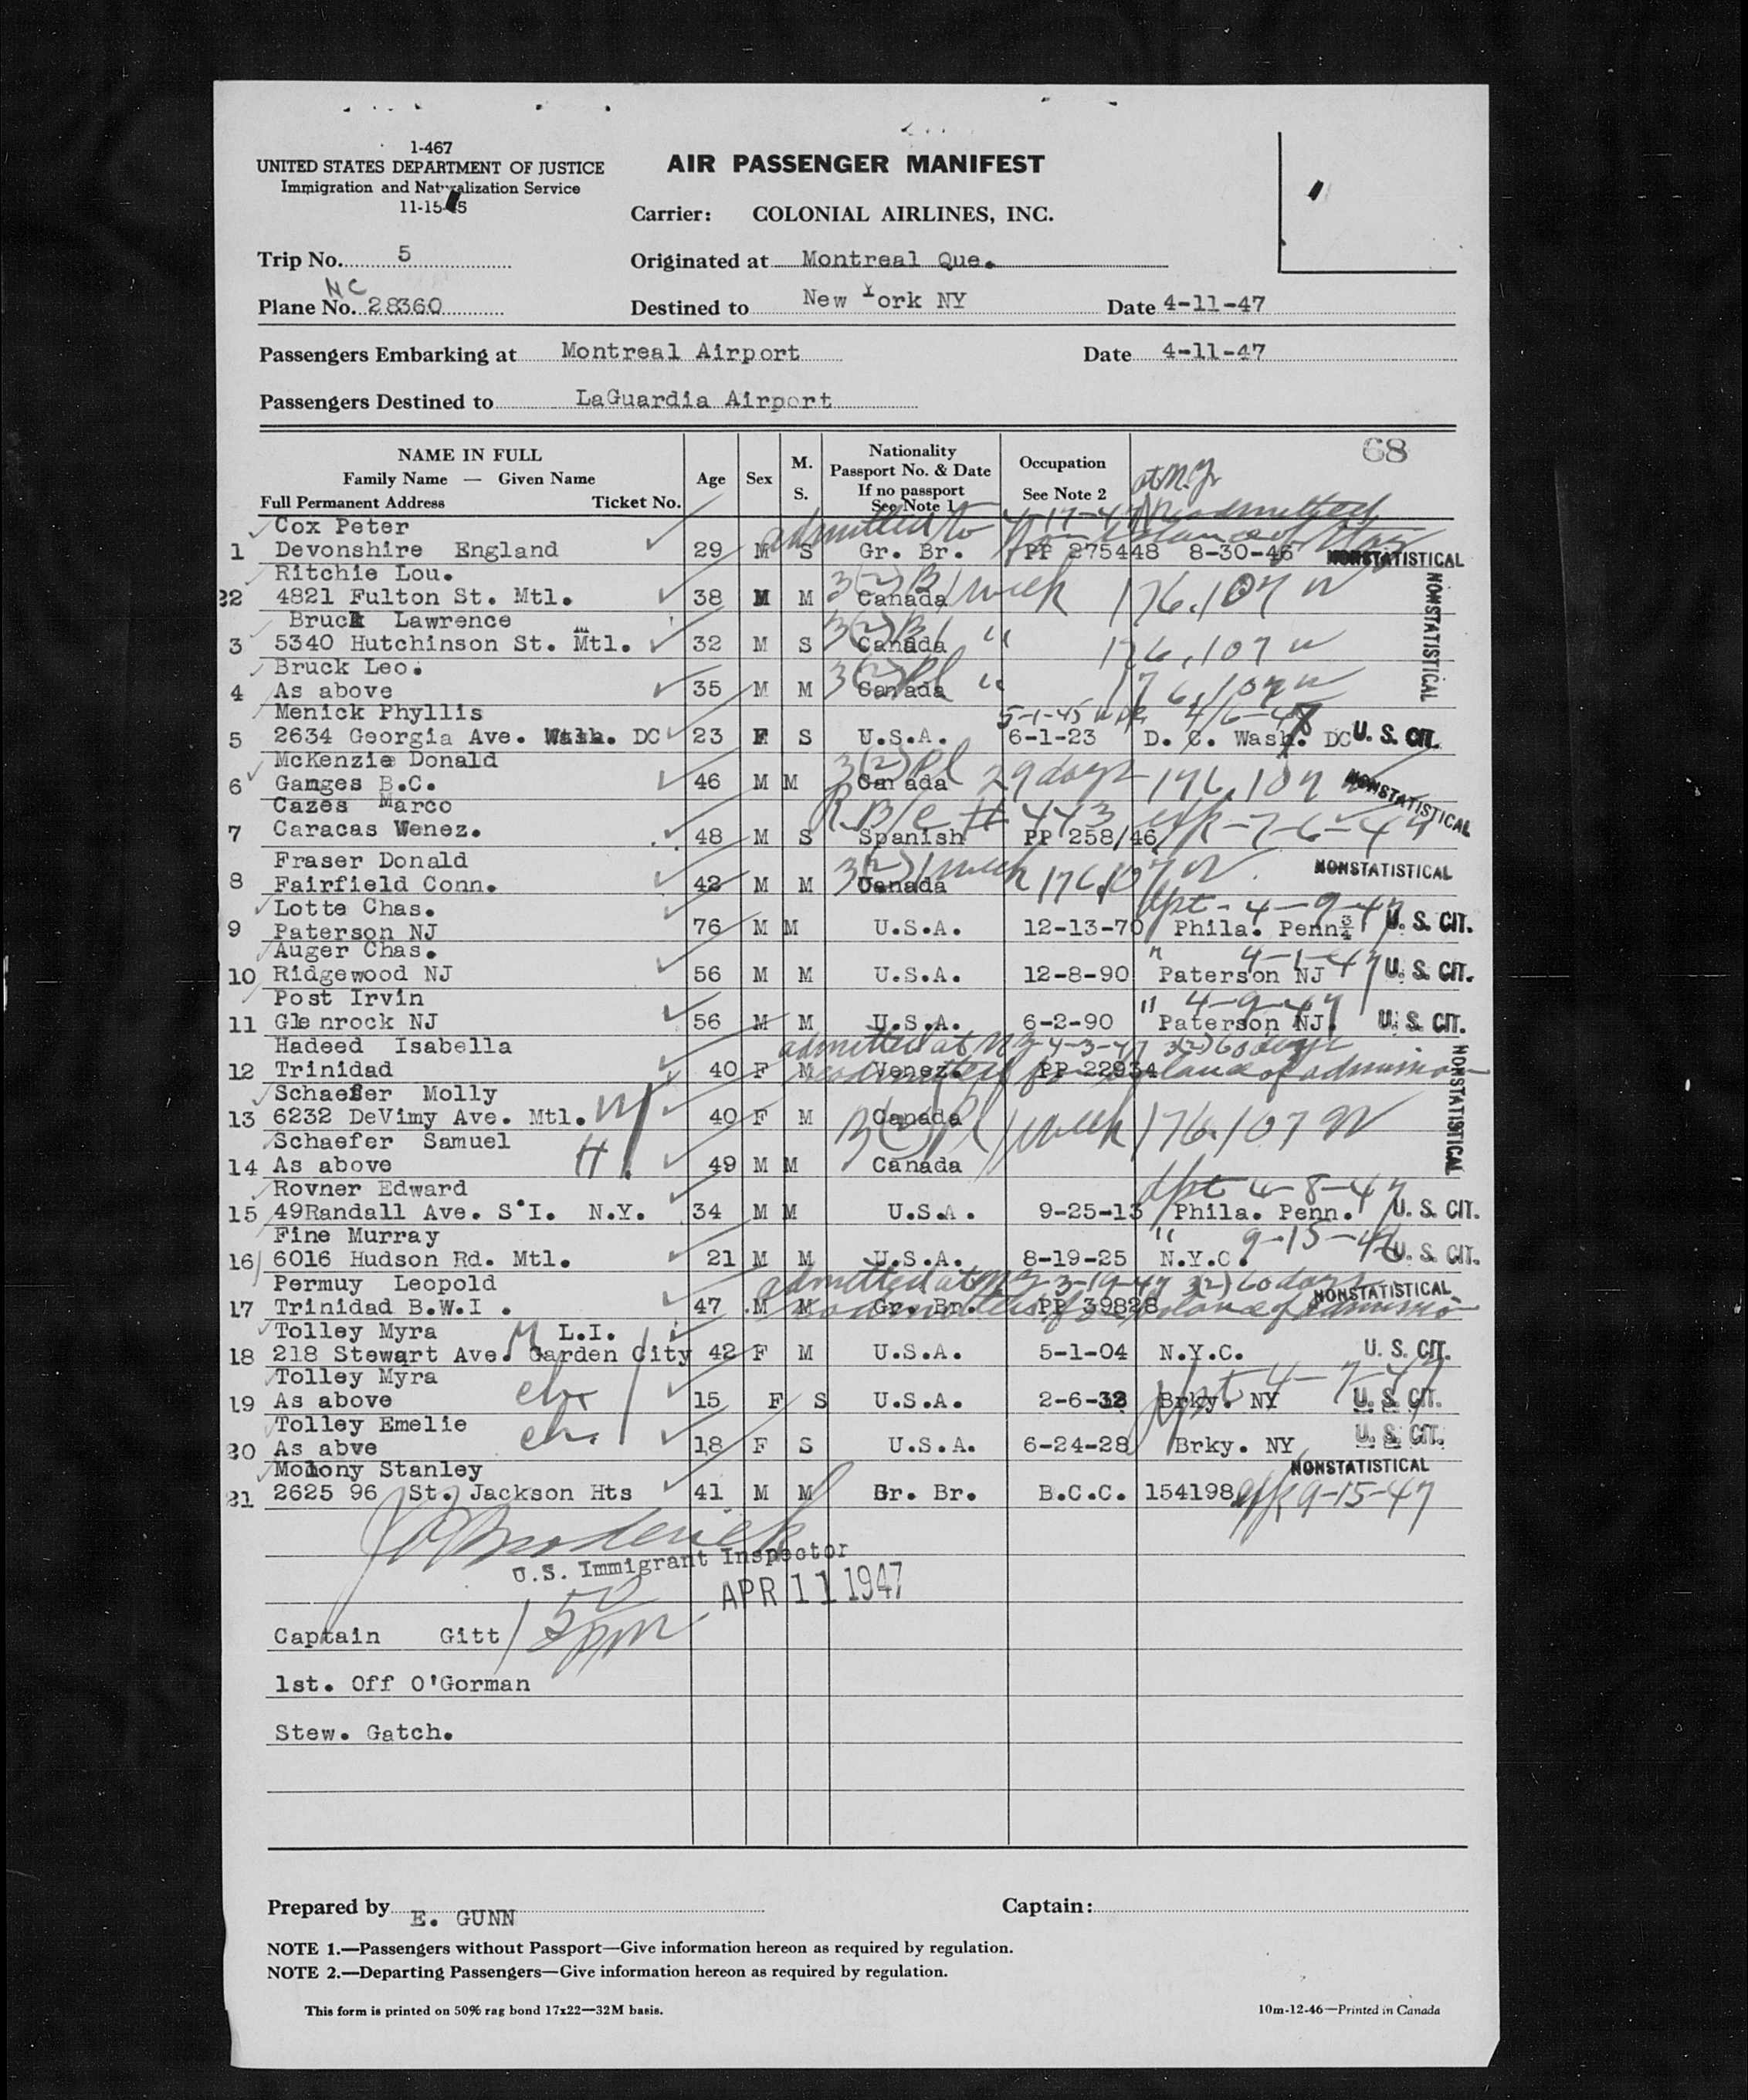 1-467
UNITED STATES DEPARTMENT OF JUSTICE
Immigration and Naturalization Service
11-15-45
AIR PASSENGER MANIFEST
Carrier: COLONIAL AIRLINES, INC.
Trip No. 5
Originated at Montreal Que.
NC
Plane No. 28360
Destined to New York NY
Date 4-11-47
Passengers Embarking at Montreal Airport
Date 4-11-47
Passengers Destined to LaGuardia Airport
68
NAME IN FULL
Family Name — Given Name
Full Permanent Address Ticket No.
Age
Sex
M. S.
Nationality
Passport No. & Date
If no passport
See Note 1
Occupation
See Note 2
at N.Y.
admitted to 4-17-47 Readmitted
Cox Peter
1 Devonshire England 29 M S Gr. Br. PP 275448 8-30-46 NONSTATISTICAL
Ritchie Lou. 3(2)B/ week 176.107
22 4821 Fulton St. Mtl. 38 M M Canada
NONSTATISTICAL
Bruck Lawrence 3(2)B/ " 176.107
3 5340 Hutchinson St. Mtl. 32 M S Canada
Bruck Leo. 3(2)Pl " 176.107
4 As above 35 M M Canada
Menick Phyllis 5-1-45
5 2634 Georgia Ave. Wash. DC 23 F S U.S.A. 6-1-23 D. C. Wash. DC U. S. CIT.
McKenzie Donald 3(2)Pl 29 days 176.107
6 Ganges B.C. 46 M M Canada NONSTATISTICAL
Cazes Marco # 443 7-6-47
7 Caracas Venez. 48 M S Spanish PP 258/46
Fraser Donald 3(2)1 week 176.107
8 Fairfield Conn. 42 M M Canada NONSTATISTICAL
Lotte Chas. dpt- 4-9-47
9 Paterson NJ 76 M M U.S.A. 12-13-70 Phila. Penn¾ U. S. CIT.
Auger Chas. " 4-1-47
10 Ridgewood NJ 56 M M U.S.A. 12-8-90 Paterson NJ U. S. CIT.
Post Irvin " 4-9-47
11 Glenrock NJ 56 M M U.S.A. 6-2-90 Paterson NJ. U. S. CIT.
Hadeed Isabella admitted at NY 4-3-47 3(2)60 days
12 Trinidad 40 F M Venez. PP 22934
readmitted for balance of admission
NONSTATISTICAL
Schaefer Molly
13 6232 DeVimy Ave. Mtl. W 40 F M Canada
3(2)Pl 1 week 176.107
Schaefer Samuel
14 As above H 49 M M Canada
Rovner Edward dpt 4-8-47
15 49Randall Ave. S.I. N.Y. 34 M M U.S.A. 9-25-13 Phila. Penn. U. S. CIT.
Fine Murray " 9-15-46
16 6016 Hudson Rd. Mtl. 21 M M U.S.A. 8-19-25 N.Y.C. U. S. CIT.
Permuy Leopold admitted at NY 3-19-47 3(2) 60 days NONSTATISTICAL
17 Trinidad B.W.I . 47 M M Gr. Br. PP 39828
readmitted for balance of admission
Tolley Myra M L.I.
18 218 Stewart Ave. Garden City 42 F M U.S.A. 5-1-04 N.Y.C. U. S. CIT.
Tolley Myra ch dpt 4-7-47
19 As above 15 F S U.S.A. 2-6-32 Brky. NY U. S. CIT.
Tolley Emelie ch.
20 As abve 18 F S U.S.A. 6-24-28 Brky. NY U. S. CIT.
Molony Stanley NONSTATISTICAL
21 2625 96 St. Jackson Hts 41 M M Gr. Br. B.C.C. 154198 9-15-47
Broderick
U.S. Immigrant Inspector
APR 11 1947
Captain Gitt
150 pm
1st. Off O'Gorman
Stew. Gatch.
Prepared by E. GUNN
Captain:
NOTE 1.—Passengers without Passport—Give information hereon as required by regulation.
NOTE 2.—Departing Passengers—Give information hereon as required by regulation.
This form is printed on 50% rag bond 17x22—32M basis.
10m-12-46—Printed in Canada